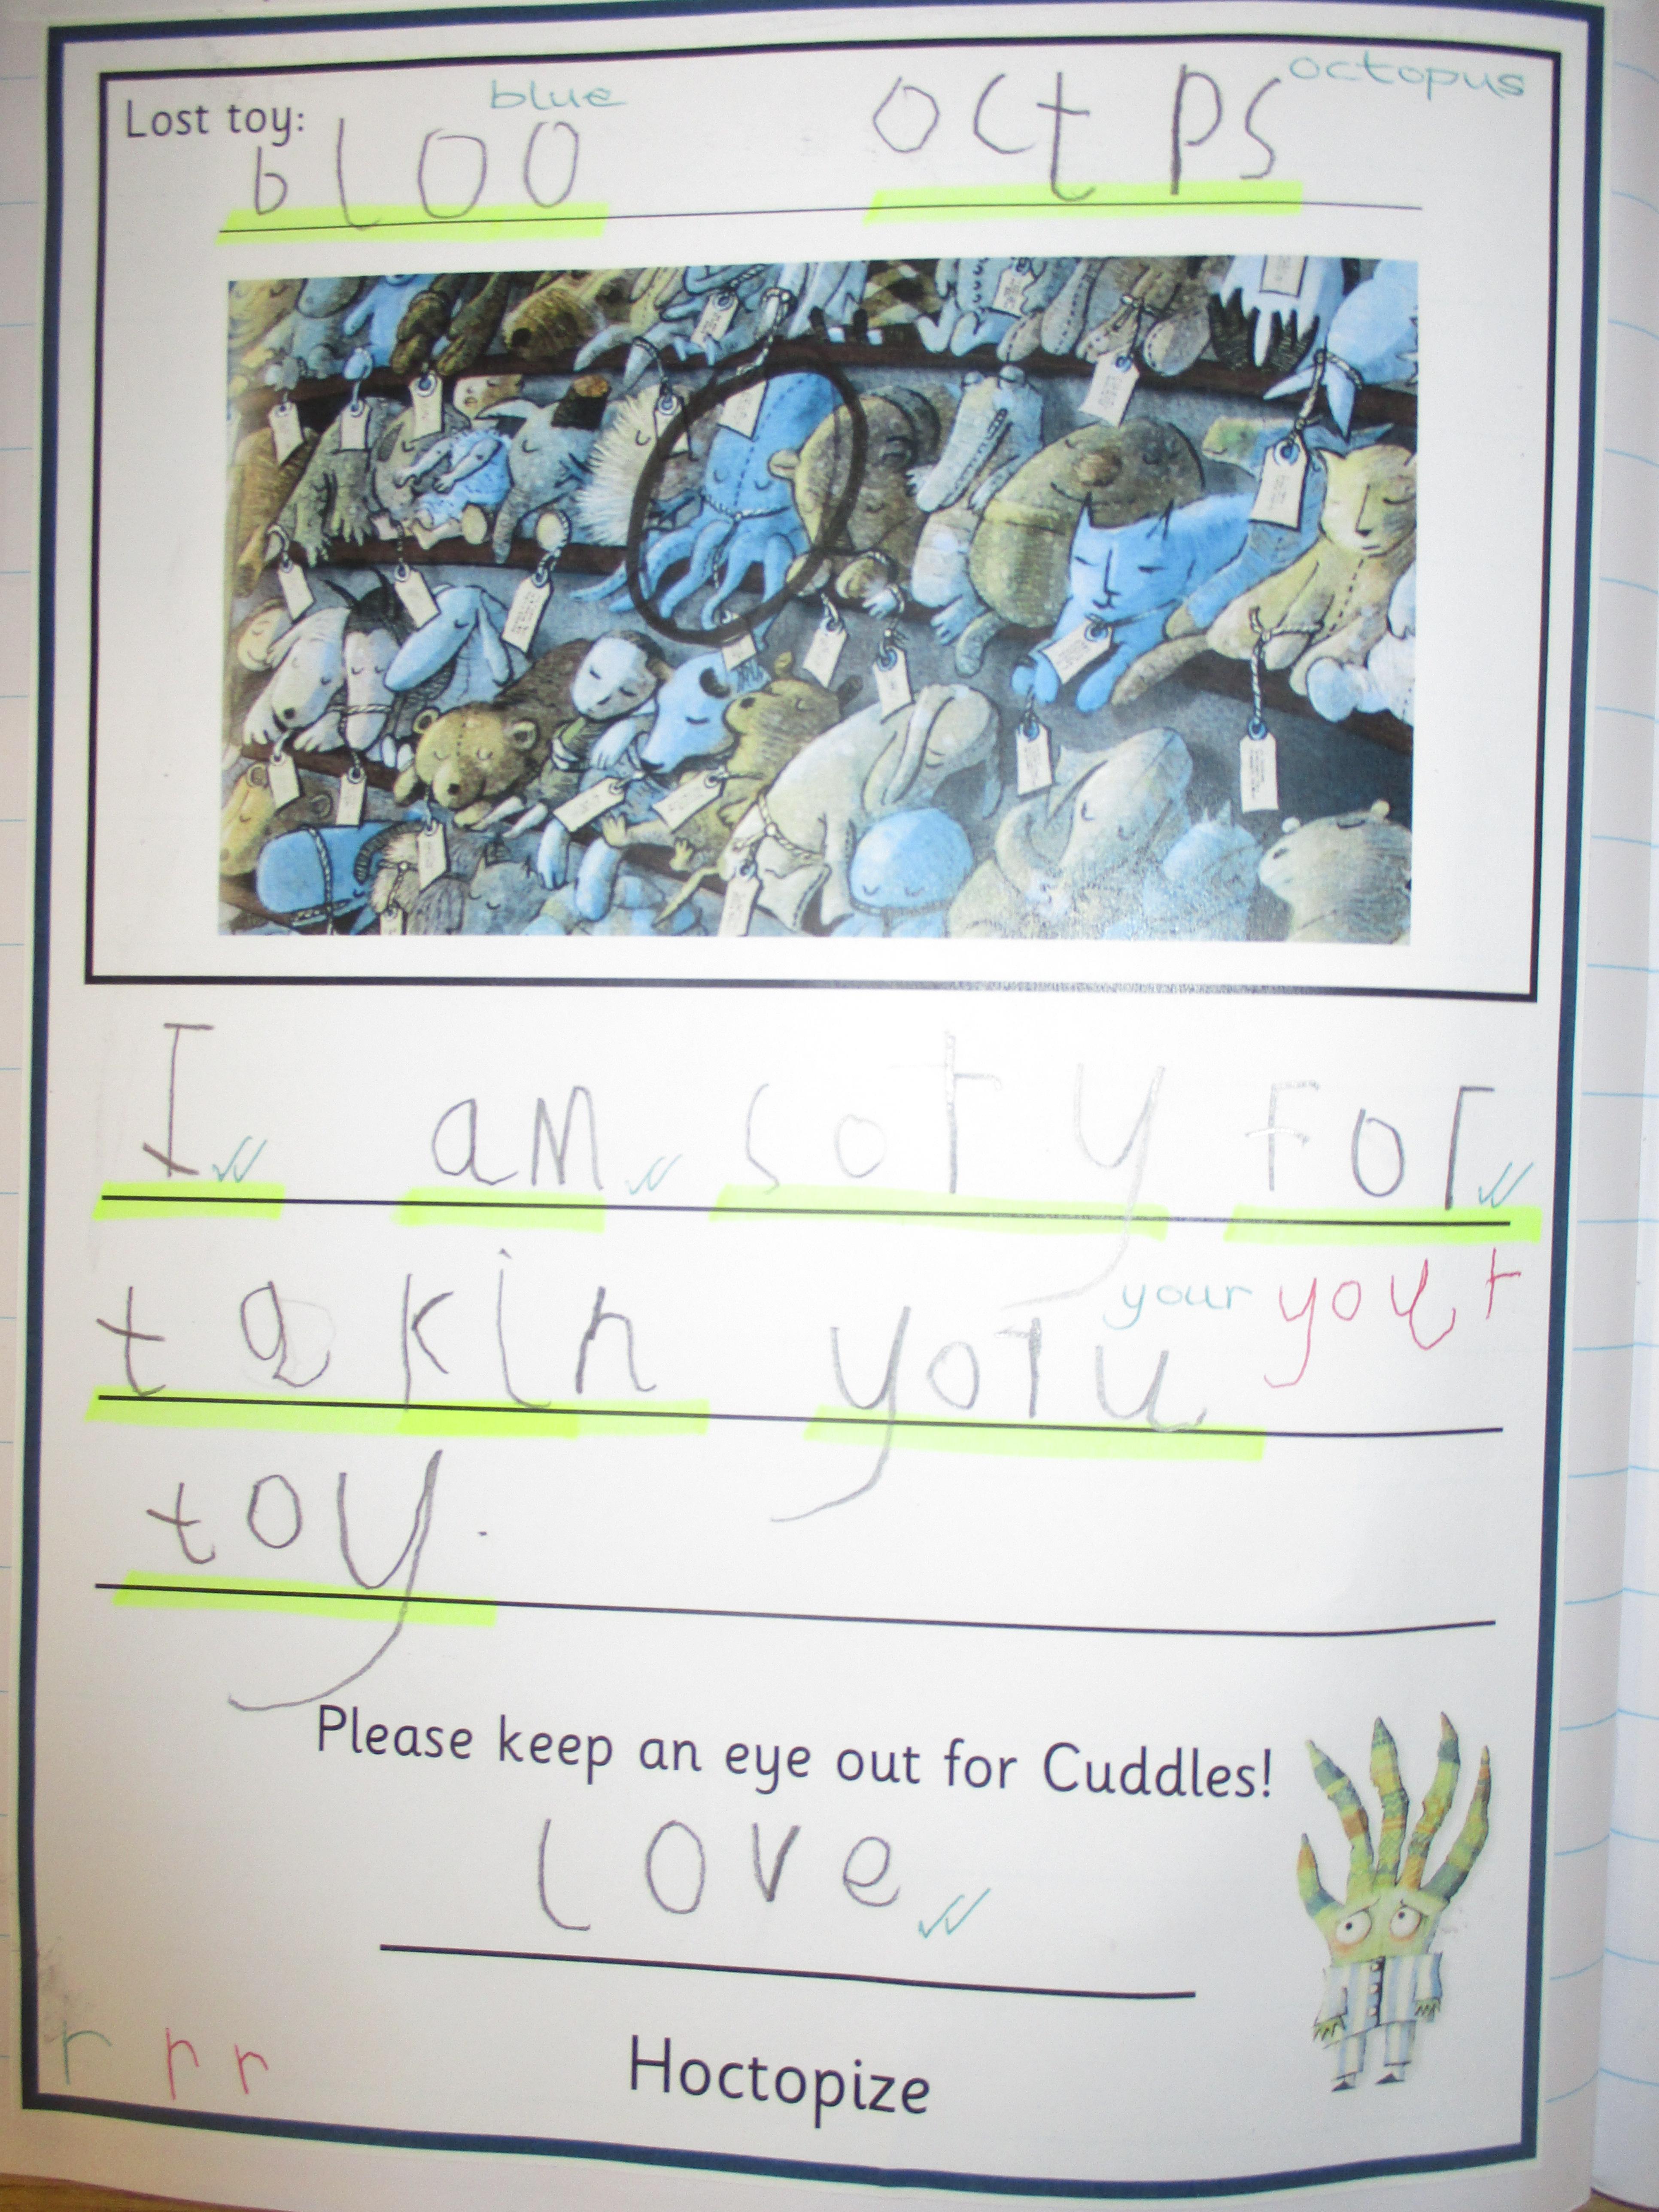 blue octopus
Lost toy: bloo octps
I am soty for
your your
takin yoru
toy.
Please keep an eye out for Cuddles!
love
Hoctopize
r r r